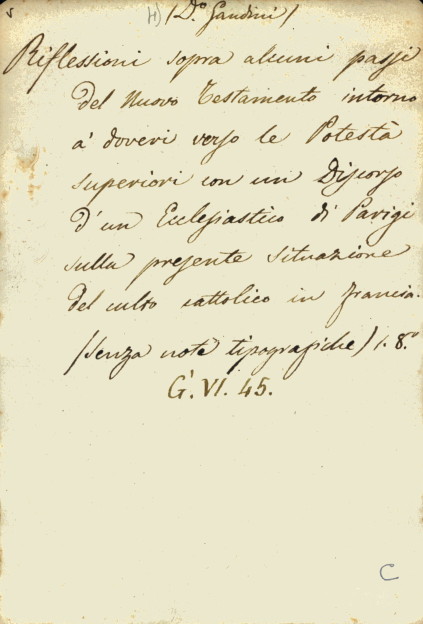 5 H) (D.º Gandini)
Riflessioni sopra alcuni passi
del Nuovo Testamento intorno
a' doveri verso le Potestà
superiori con un Discorso
d'un Ecclesiastico di Parigi
sulla presente situazione
del culto cattolico in Francia.
(senza note tipografiche) 1. 8.º
G. VI. 45.
C